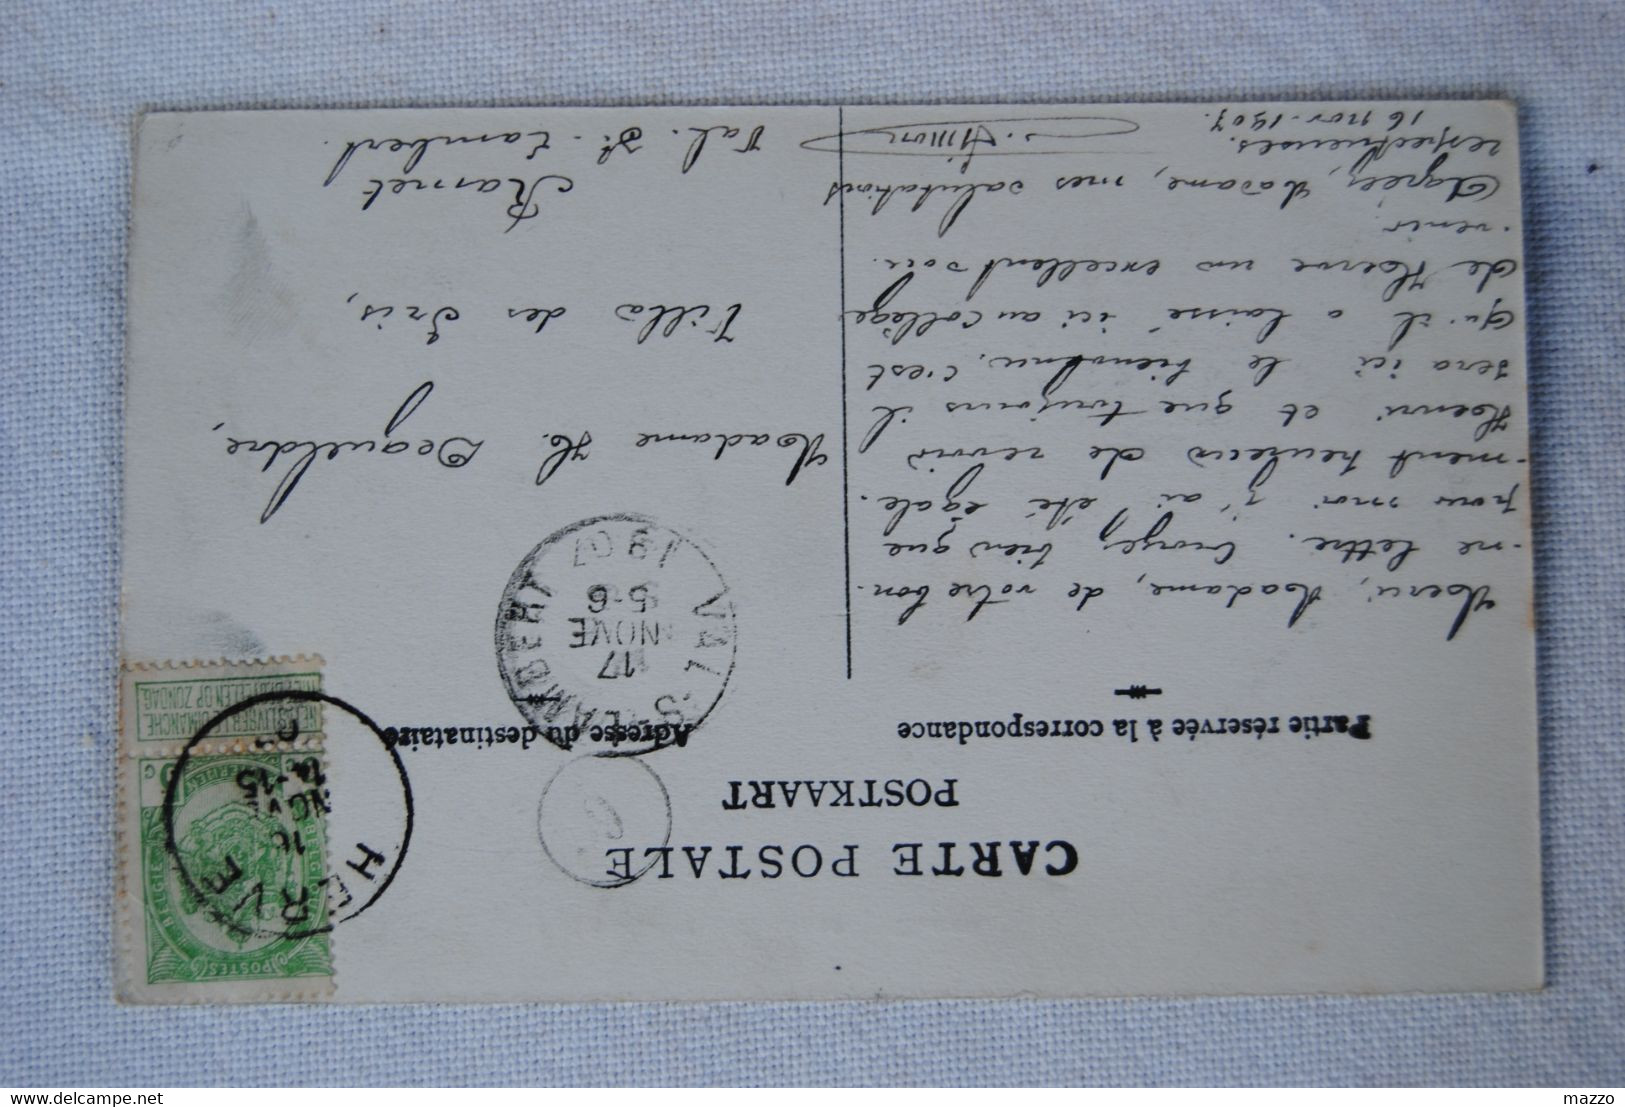 CARTE POSTALE
POSTKAART
Partie réservée à la correspondance
Adresse du destinataire
Merci, Madame, de votre bon-
-ne lettre. Croyez bien que
pour moi j'ai été égale-
-ment heureux de revoir
Henri et que toujours il
sera ici le bienvenu. C'est
qu'il a laissé ici au Collège
de Herve un excellent sou-
-venir.
Agréez, Madame, mes salutations
respectueuses.
16 nov. 1907.
Simon
Madame H. Dequeldre,
Villa des Iris,
Ramet
Val. St. Lambert.
VAL-ST-LAMBERT
17
NOVE
5-6
1907
HERVE
16
NOV
14-15
07
POSTES
BELGIE
BELGIQUE
NE PAS LIVRER LE DIMANCHE
NIET BESTELLEN OP ZONDAG
delcampe.net
mazzo